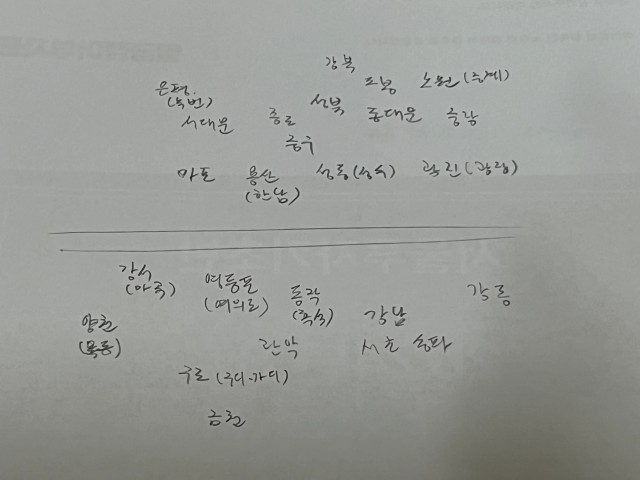 강북
도봉 노원(중계)
은평
(녹번)
성북
서대문 종로 동대문 중랑
중구
마포 용산 성동(성수) 광진(광장)
(한남)
강서
(마곡)
여의도
영등포
(여의도)
동작
(흑석)
강동
강남
양천
(목동)
관악
서초 송파
구로(구디-가디)
금천